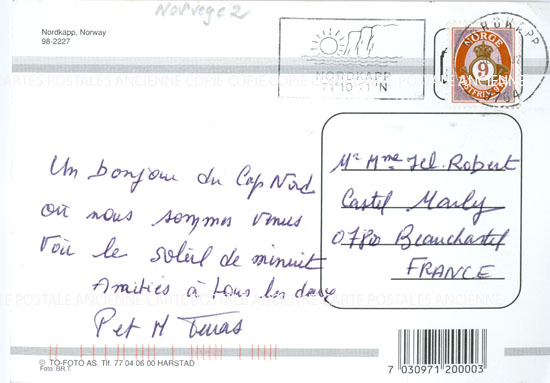 Norvege 2
Nordkapp, Norway
98-2227
NORDKAPP
71°10'21"N
NORGE
9
CARTES POSTALES ANCIENNE COPIE COPIE COPIE CARTES POSTALES ANCIENNE
Un bonjour du Cap Nord
où nous sommes venus
voir le soleil de minuit
Amitiés à tous les deux
P et M
Mr Mme Robert
Castel Marly
07800 Beauchastel
FRANCE
CARTE POSTALE ANCIENNE
CARTE POSTALE ANCIENNE
© TO-FOTO AS. Tlf. 77 04 06 00 HARSTAD
Foto: BR.T.
7 030971 200003